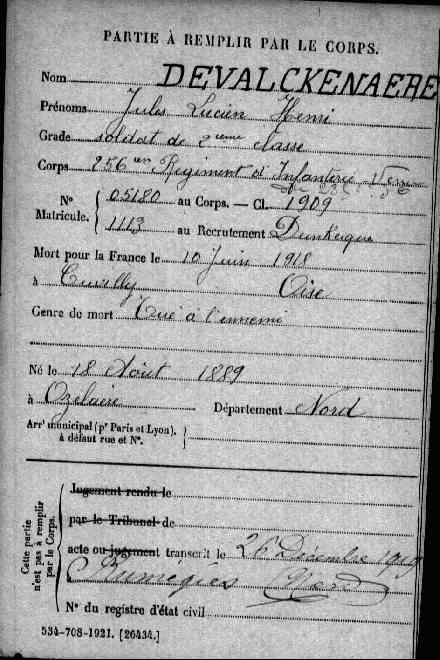 PARTIE À REMPLIR PAR LE CORPS.
Nom DEVALCKENAERE
Prénoms Jules Lucien Henri
Grade soldat de 2eme classe
Corps 256 Regiment d'Infanterie
N° Matricule. 05180 au Corps. — Cl. 1909
1113 au Recrutement Dunkerque
Mort pour la France le 10 Juin 1918
à Cuvilly Oise
Genre de mort Tué à l'ennemi
Né le 18 Août 1889
à Ozelaire Département Nord
Arrt municipal (pr Paris et Lyon),
à défaut rue et N°.
Cette partie n'est pas à remplir par le Corps.
Jugement rendu le
par le Tribunal de
acte ou jugement transcrit le 26 Décembre 1919
Rumegies Nord
N° du registre d'état civil
534-708-1921. [26434.]